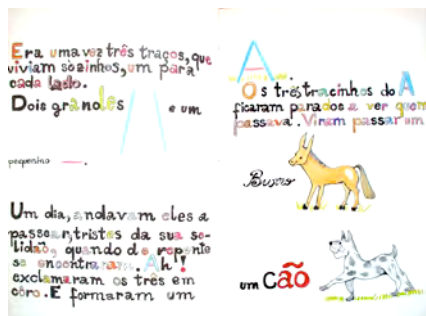 Era uma vez três traços, que
viviam sozinhos, um para
cada lado.
Dois grandes e um
pequenino .
Um dia, andavam eles a
passear, tristes da sua so-
lidão, quando de repente
se encontraram. Ah!
exclamaram os três em
côro. E formaram um
A.
Os três tracinhos do A
ficaram parados a ver quem
passava. Viram passar um
Burro
um Cão